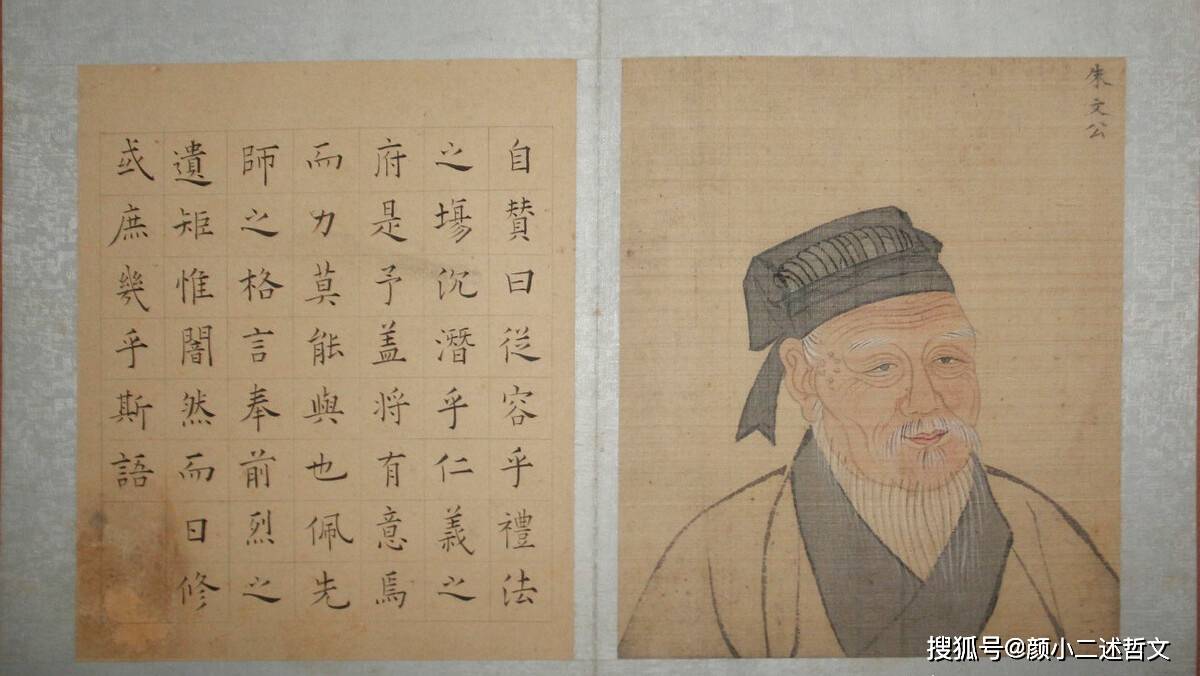 朱文公
自贊曰從容乎禮法
之場沉潛乎仁義之
府是予盖将有意焉
而力莫能與也佩先
師之格言奉前烈之
遺矩惟闇然而日修
或庶幾乎斯語
搜狐号@颜小二述哲文